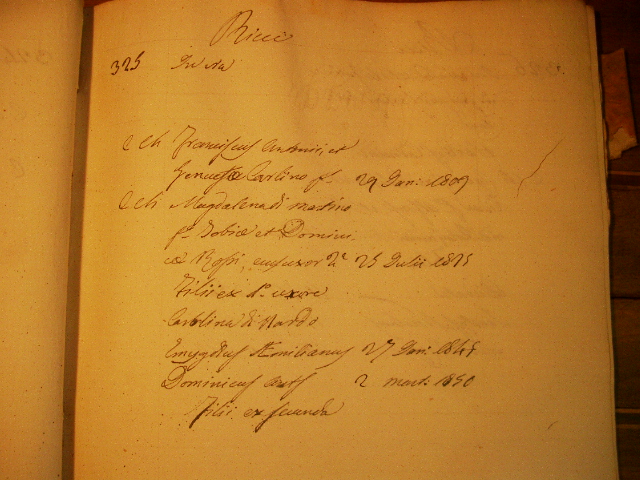 Ricci
325 In via
Franciscus Antonii, et
Genuefæ Carlino fs. 29 Jan: 1809
Magdalena di martino
fa Tobiæ et Domini
cæ Rossi, ejus uxor 2a 25 Julii 1825
Filii ex da uxore
Carolina di Nardo
Emygdius Æmilianus 27 Jan: 1845
Dominicus 2 mart: 1850
Filii ex secunda